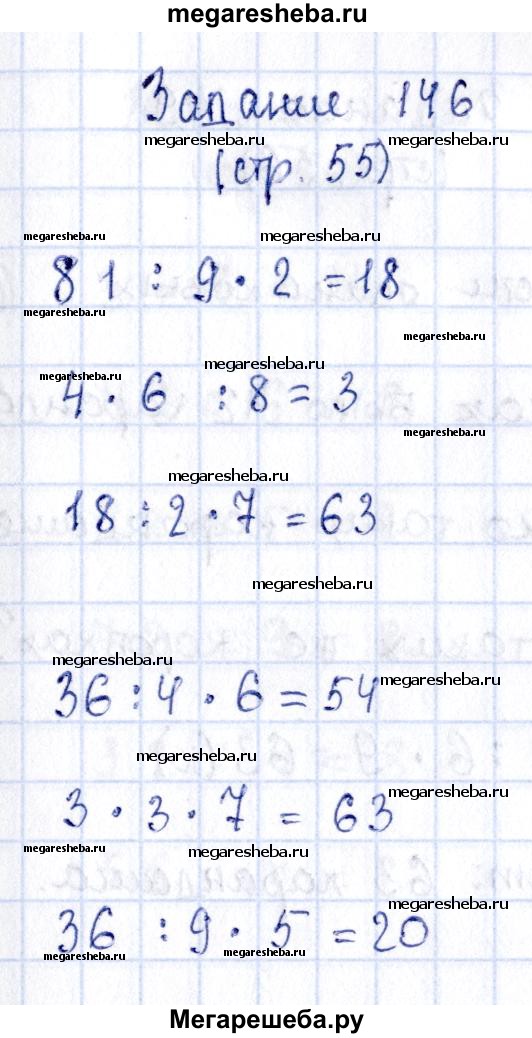 megaresheba.ru
Задание 146
megaresheba.ru megaresheba.ru
(стр. 55)
megaresheba.ru megaresheba.ru
81 : 9 · 2 = 18
megaresheba.ru
megaresheba.ru
megaresheba.ru
megaresheba.ru
4 · 6 : 8 = 3
megaresheba.ru
megaresheba.ru
18 : 2 · 7 = 63
megaresheba.ru
megaresheba.ru
megaresheba.ru
36 : 4 · 6 = 54
megaresheba.ru
megaresheba.ru
3 · 3 · 7 = 63
megaresheba.ru
megaresheba.ru
megaresheba.ru
36 : 9 · 5 = 20
megaresheba.ru megaresheba.ru megaresheba.ru
Мегарешеба.ру